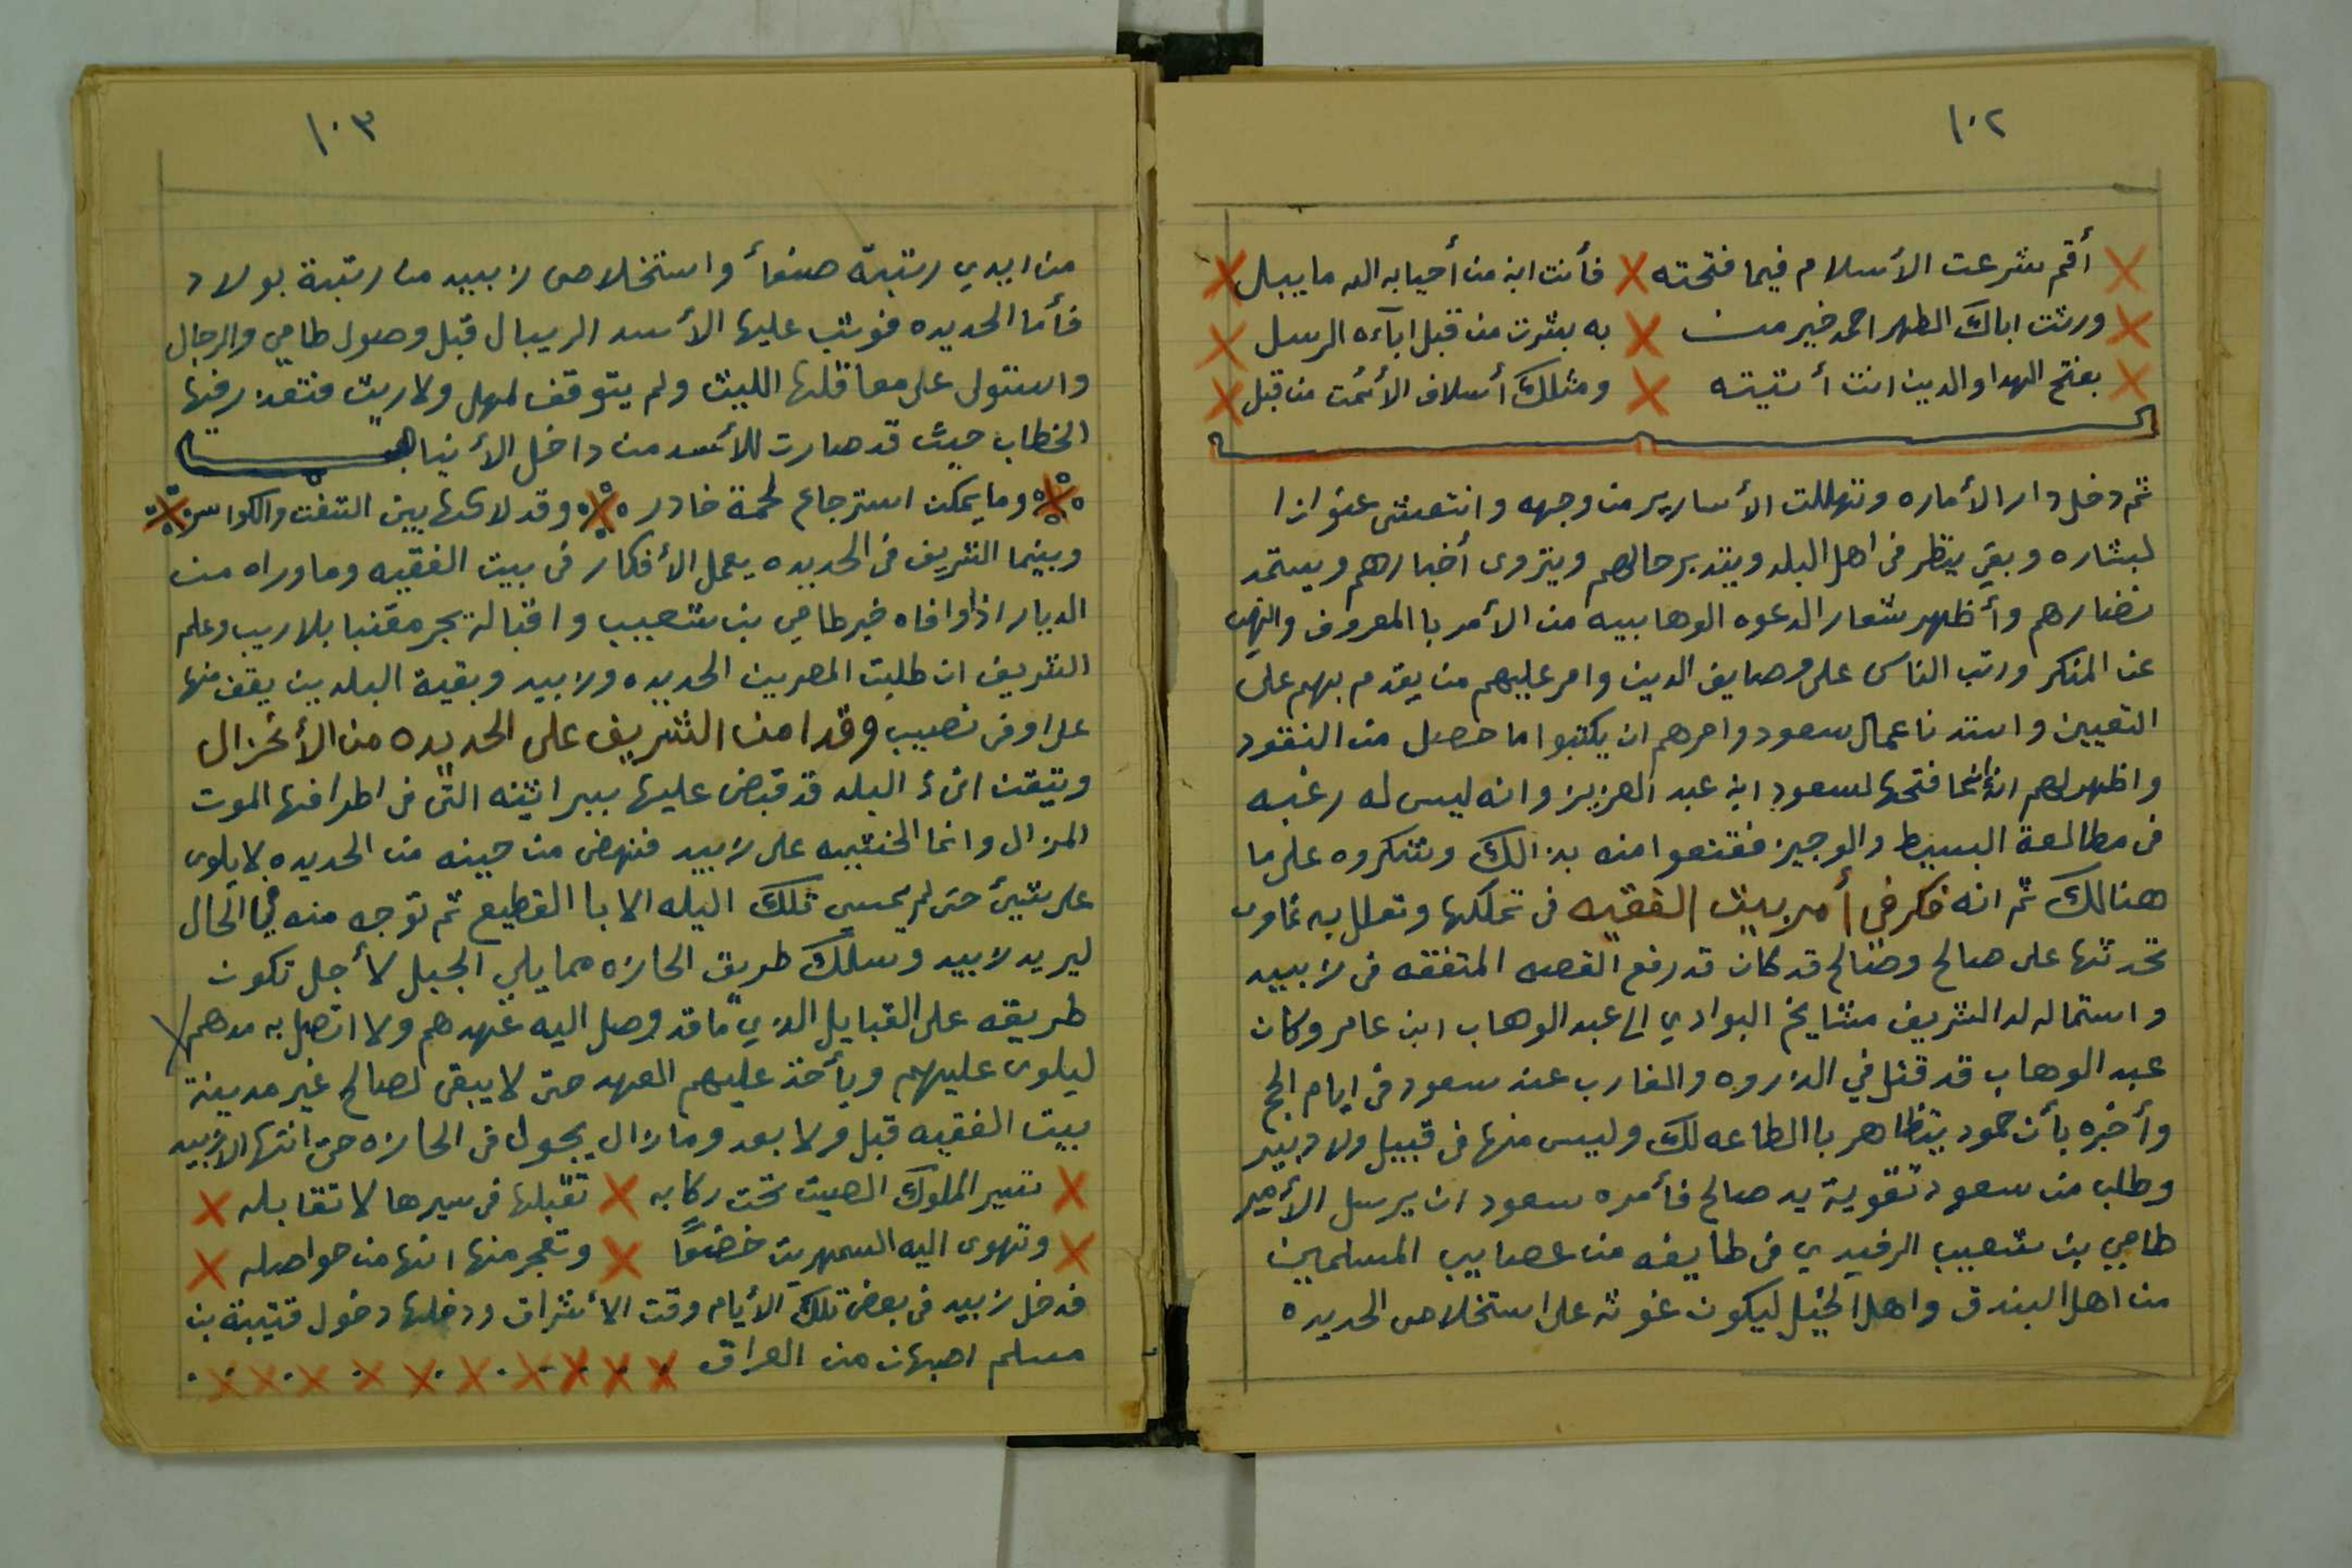 ١٠٢
أقم شرعت الأسلام فيما فتحته فأنت ابن من أحيا به الله ما يبل
ورثت اباك الطهر احمد خير من به بشرت من قبل ابآءه الرسل
بفتح الهدا والدين انت أتيته ومثلك أسلاف الأئمت من قبل
ثم دخل دار الأماره وتهللت الأسارير من وجهه وانتعش
لبشاره وبقي ينظر في اهل البلد ويتدبر حالهم ويتروى أخبارهم ويستمد
نضارهم وأظهر شعار الدعوه الوهابيه من الأمر با المعروف والنهي
عن المنكر ورتب الناس على وصايف الدين وامر عليهم من يقدم بهم على
التعيين واستدنا عمال سعود وامرهم ان يكتبوا ما حصل من النقود
واظهر لهم انه إنما فتحها لسعود ابن عبد العزيز وانه ليس له رغبه
في مطالعة البسيط والوجيز فقنعوا منه بذالك وشكروه على ما
هنالك ثم انه فكر في أمر بيت الفقيه في تملكها وتعلل به
تحدثها على صالح وصالح قد كان قد رفع القصه المتفقه في زبيد
واستماله له الشريف مشايخ البوادي الى عبد الوهاب ابن عامر وكان
عبد الوهاب قد قتل في الذروه والغارب عند سعود في ايام الحج
وأخبره بأن حمود يتظاهر با الطاعه لك وليس منها في قبيل ولا دبير
وطلب من سعود تقوية يد صالح فأمره سعود ان يرسل الأمير
طامي بن شعيب الرفيدي في طايفه من عصايب المسلمين
من اهل البندق واهل الخيل ليكون غوثه على استخلاص الحديده
١٠٣
من ايدي رتبة صنعأ واستخلاص زبيد من رتبة بولاد
فأما الحديده فوثب عليها الأسد الريبال قبل وصول طامي والرجال
واستولى على معاقلها الليث ولم يتوقف لمهل ولا ريث فتعذر فيها
الخطاب حيث قد صارت للأسد من داخل الأنياب
وما يمكن استرجاع لحمة خادر وقد لاكها بين
وبينما الشريف في الحديده يعمل الأفكار في بيت الفقيه وما وراه من
الديار اذا وافاه خبر طامي بن شعيب واقباله بجر مقنبا بلا ريب وعلم
الشريف ان طلبت المصرين الحديده وزبيد وبقية البلدين يقف منها
على اوفى نصيب وقد امن الشريف على الحديده من الأنخزال
وتيقن ان البلد قد قبض عليها ببراثنه التي في اطرافها الموت
المزال وانما الخشيه على زبيد فنهض من حينه من الحديده لا يلوى
على شيئ حتى لم يمسي تلك اليله الا با القطيع ثم توجه منه في الحال
ليريد زبيد وسلك طريق الحازه مما يلي الجبل لأجل تكون
طريقه على القبايل الذي ما قد وصل اليه عهدهم ولا اتصل به مدهم
ليلوى عليهم ويأخذ عليهم العهد حتى لا يبقى لصالح غير مدينة
بيت الفقيه قبل ولا بعد وما زال يجول في الحازه حتى انتها الا زبيد
تسير الملوك الصيت تحت ركابه تقبلها في سيرها لا تقابله
وتهوى اليه السمهريت خضعًا وتفجر منها انها من حواصله
فدخل زبيد في بعض تلك الأيام وقت الأشراق ودخلها دخول قتيبة بن
مسلم اصبهان من العراق